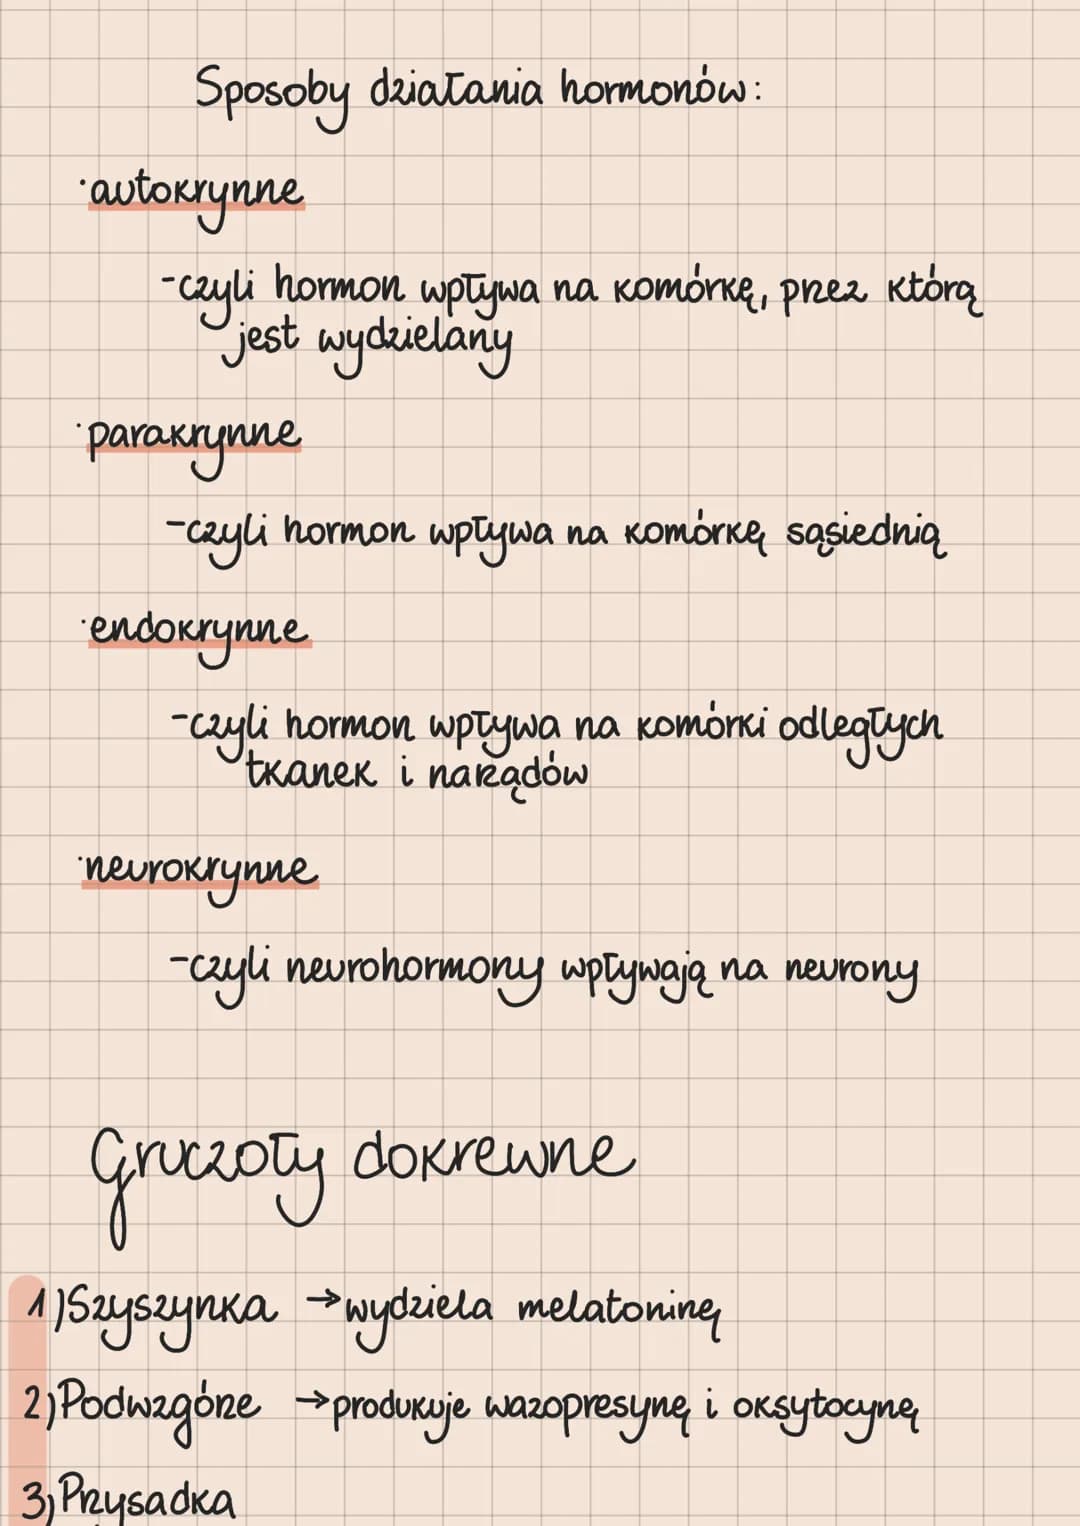 Sposoby działania hormonów:
·autokrynne
-czyli hormon wpływa na komórkę, przez którą
jest wydzielany
·parakrynne
-czyli hormon wpływa na komórkę sąsiednią
·endokrynne
-czyli hormon wpływa na komórki odległych
tkanek i narządów
·neurokrynne
-czyli neurohormony wpływają na neurony
Gruczoły dokrewne
1)Szyszynka →wydziela melatoninę
2)Podwzgórze →produkuje wazopresynę i oksytocynę
3)Przysadka